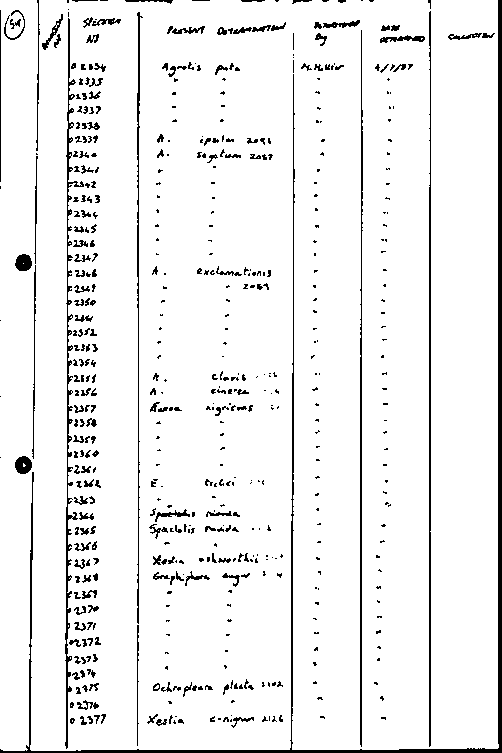 SPECIMEN PRESENT DETERMINATION DETERMINED DATE COLLECTION
No By DETERMINED
02334 Agrotis puta M. Hillier 4/7/87
02335 " " " "
02336 " " " "
02337 " " " "
02338 " " " "
02339 A. ipsilon 2091 " "
02340 A. segetum 2087 " "
02341 " " " "
02342 " " " "
02343 " " " "
02344 " " " "
02345 " " " "
02346 " " " "
02347 " " " "
02348 A. exclamationis " "
02349 " " 2089 " "
02350 " " " "
02351 " " " "
02352 " " " "
02353 " " " "
02354 " " " "
02355 A. clavis " "
02356 A. cinerea " "
02357 Euxoa nigricans " "
02358 " " " "
02359 " " " "
02360 " " " "
02361 " " " "
02362 E. tritici " "
02363 " " " "
02364 " "
02365 Spaelotis ravida " "
02366 " " " "
02367 Xestia ashworthii " "
02368 Graphiphora augur " "
02369 " " " "
02370 " " " "
02371 " " " "
02372 " " " "
02373 " " " "
02374 " " " "
02375 Ochropleura plecta 2102 " "
02376 " " " "
02377 Xestia c-nigrum 2126 " "